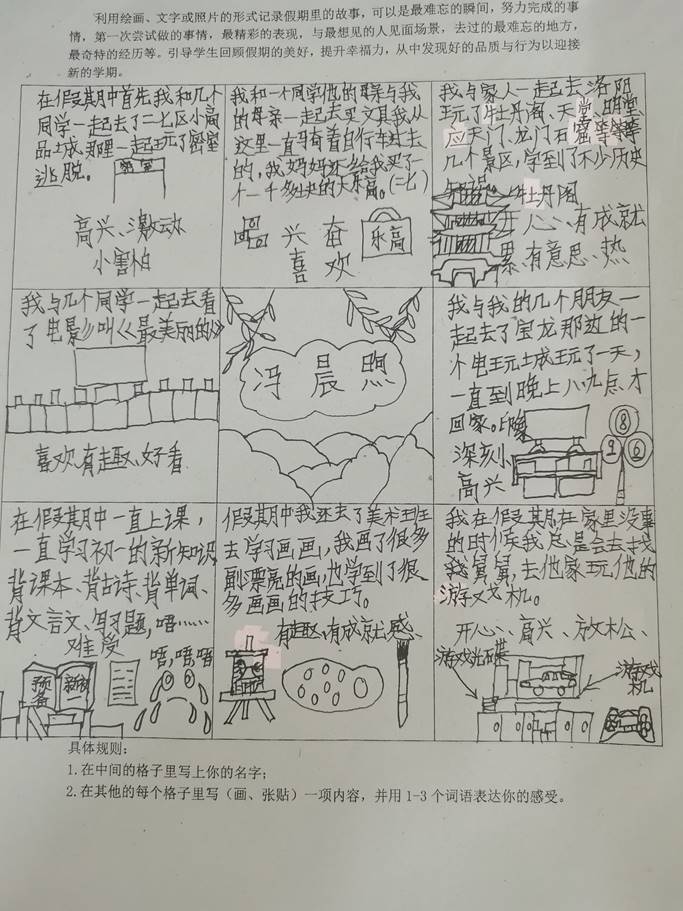 利用绘画、文字或照片的形式记录假期里的故事，可以是最难忘的瞬间，努力完成的事
情，第一次尝试做的事情，最精彩的表现，与最想见的人见面场景，去过的最难忘的地方，
最奇特的经历等。引导学生回顾假期的美好，提升幸福力，从中发现好的品质与行为以迎接
新的学期。
在假期中首先我和几个
同学一起去了二七区小商
品城，那里一起玩了密室
逃脱。
密室
高兴、激动
小害怕
我和一个同学他的母亲与我
的母亲一起去买文具我从
这里一直骑着自行车过去
的，我妈妈还给我买了
一个一千多块的大乐高。(二七)
兴奋
喜欢
乐高
我与家人一起去洛阳
玩了牡丹阁、天堂、明堂
应天门、龙门石窟等等等
几个景区，学到了不少历史
知识
牡丹阁
开心、有成就
累、有意思、热
我与几个同学一起去看
了电影叫《最美丽的》
喜欢、有趣、好看
冯晨煦
我与我的几个朋友一
起去了宝龙那边的一
个电玩城玩了一天，
一直到晚上八九点才
回家。印象
深刻
高兴
8
9
6
在假期中一直上课，
一直学习初一的新知识
背课本、背古诗、背单词、
背文言文、写习题，唔……
难受
唔，唔唔
预备
新初
假期中我还去了美术班
去学习画画，我画了很多
副漂亮的画，也学到了很
多画画的技巧。
有趣、有成就感、
我在假期在家里没事
的时候我总是会去找
我舅舅，去他家玩他的
游戏机。
开心、高兴、放松、
游戏光碟
游戏机
具体规则：
1.在中间的格子里写上你的名字；
2.在其他的每个格子里写（画、张贴）一项内容，并用 1-3 个词语表达你的感受。